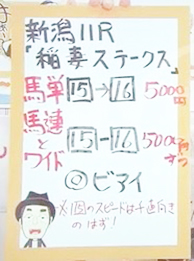 新潟11R
『稲妻ステークス』
馬単 15→16 5000円
馬連とワイド 15-16 5000円ずつ
◎ビアイ
※15のスピードは千直向き
のはず!